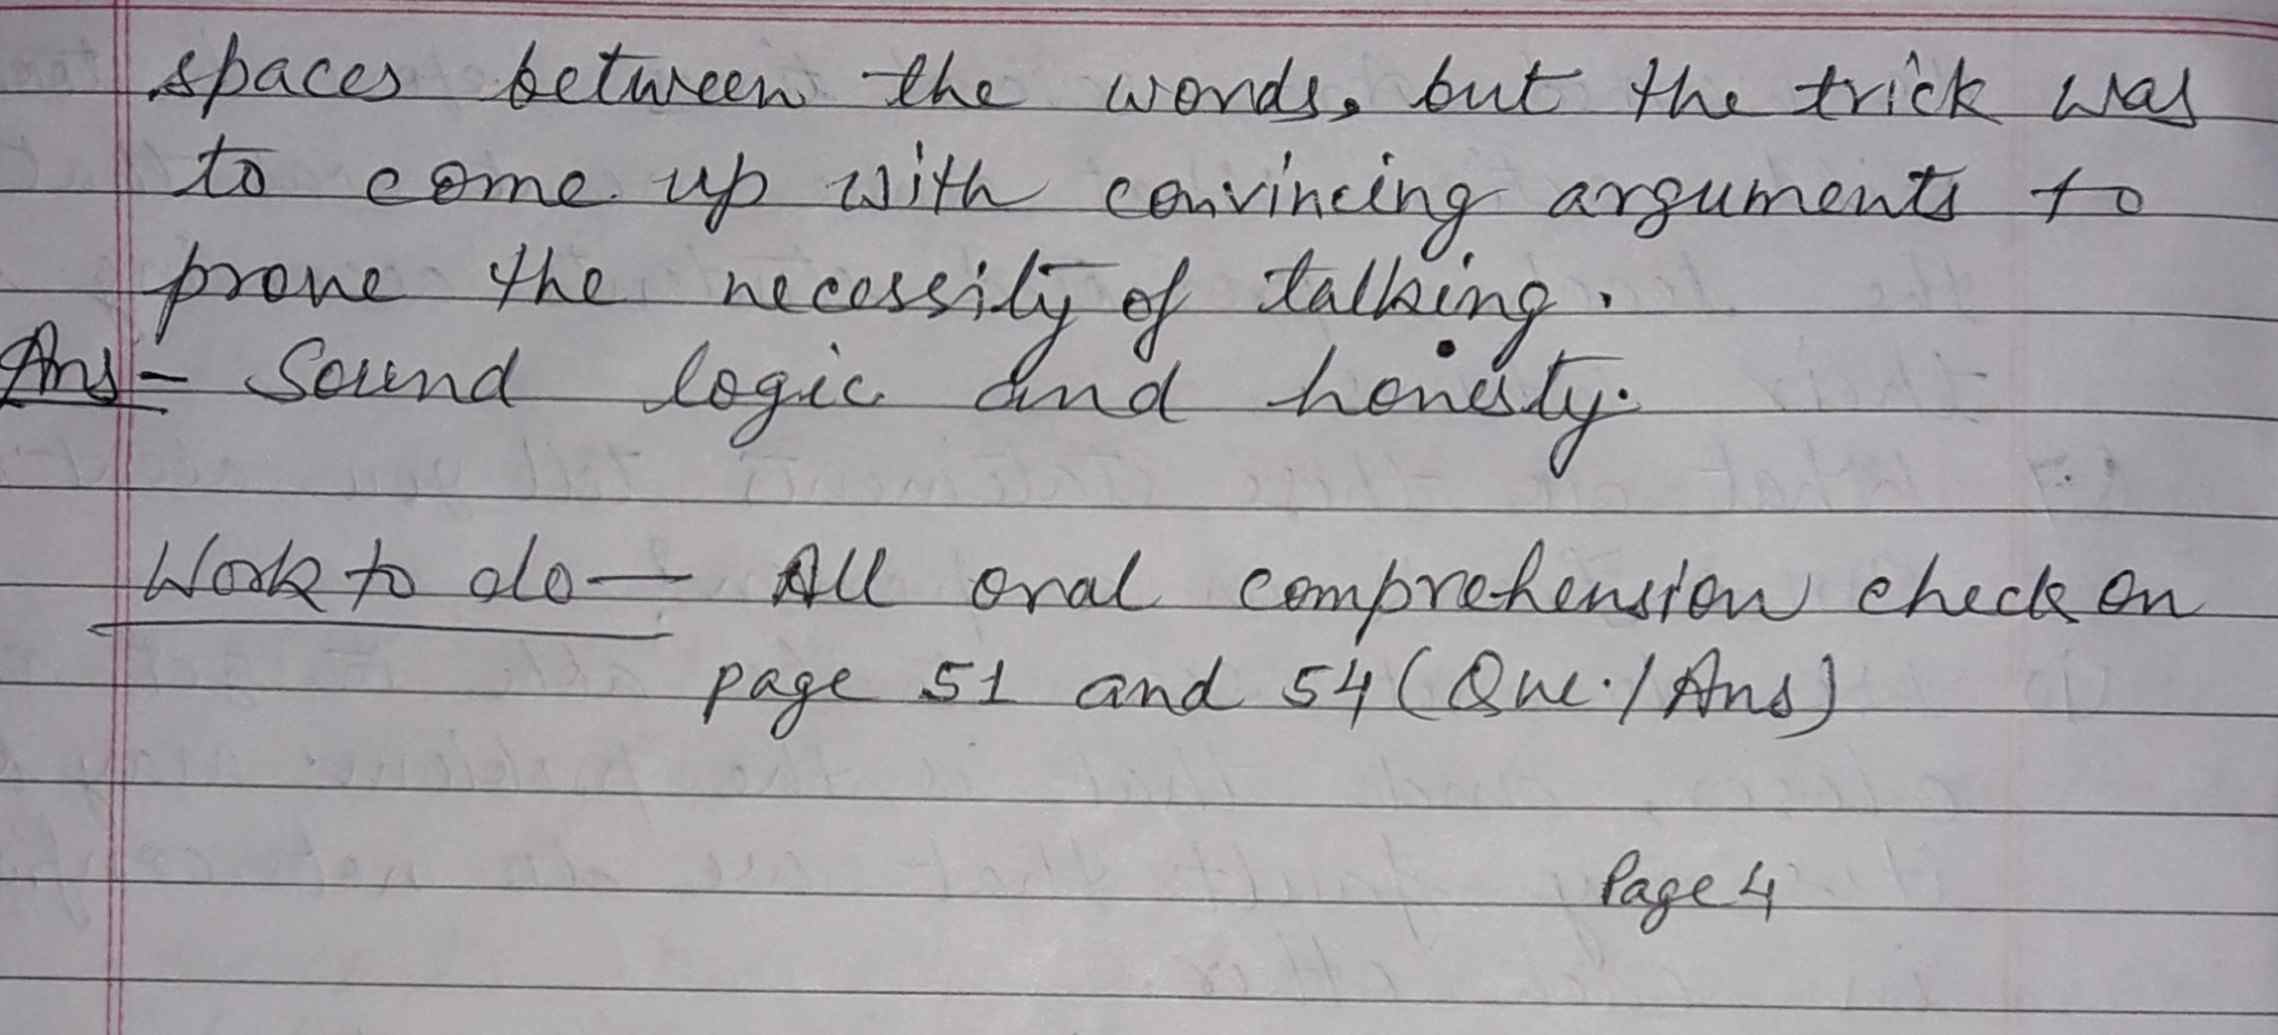 spaces between the words, but the trick was
to come up with convincing arguments to
prove the necessity of talking.
Ans- Sound logic and honesty.
Work to do — All oral comprehension check on
page 51 and 54 (Que./Ans)
Page 4